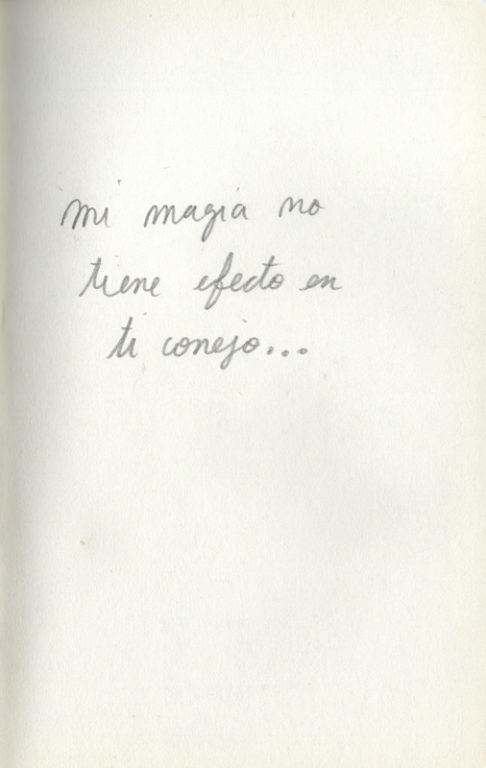 mi magia no
tiene efecto en
ti conejo...